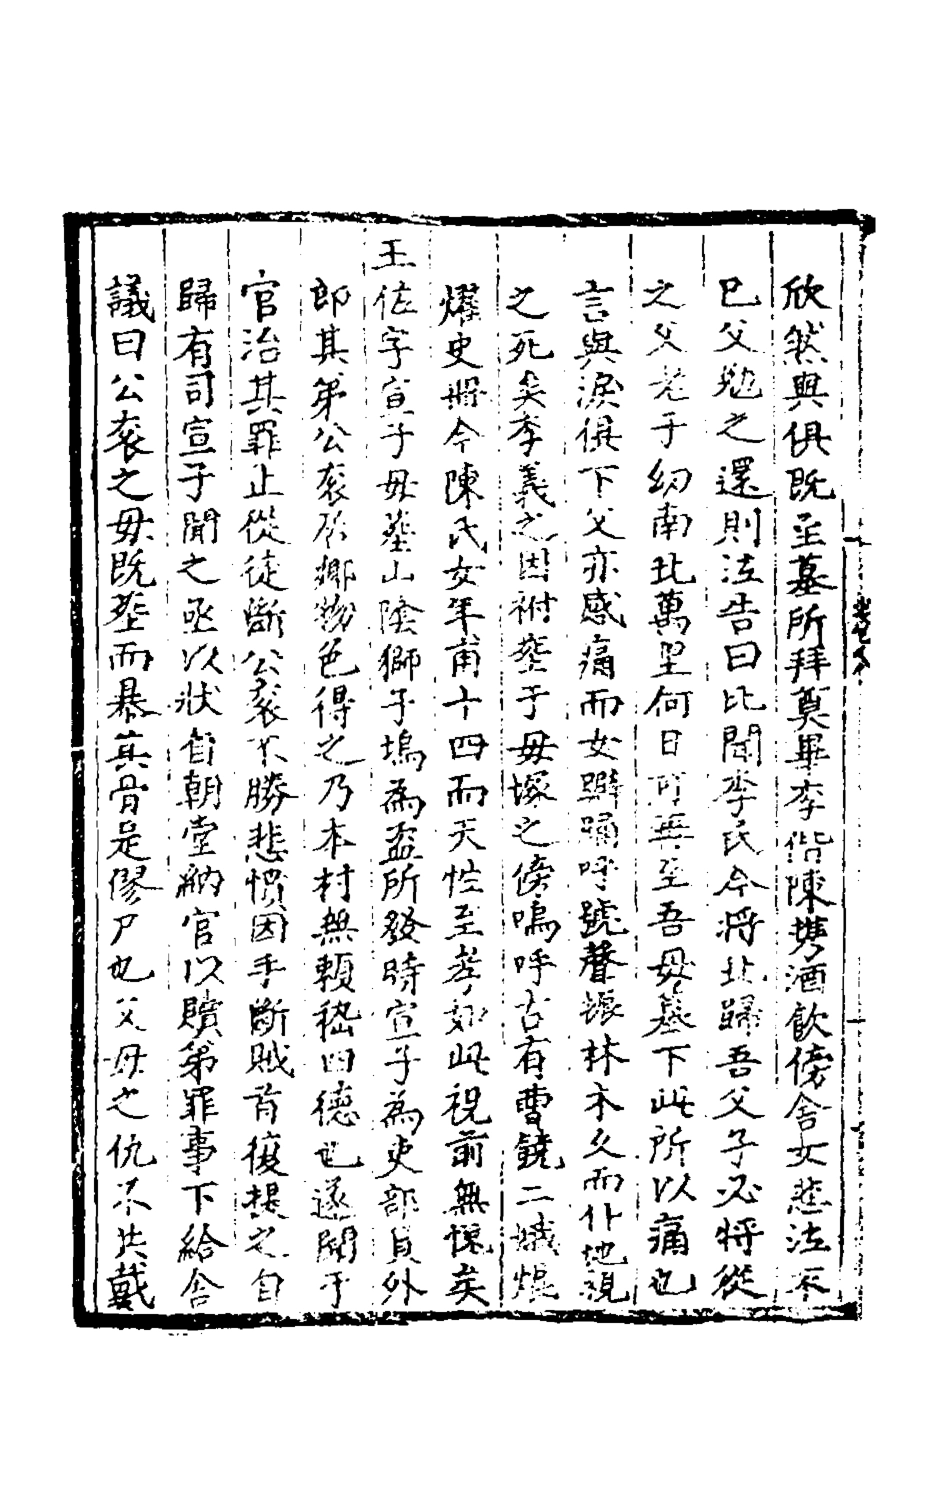 欣然與俱既至墓所拜奠畢李偕陳携酒飲傍舍女悲泣不
已父勉之還則泣告曰比聞李氏今將北歸吾父子必將從
之父老子幼南北萬里何日可再至吾母墓下此所以痛也
言與淚俱下父亦感痛而女擗踊呼號聲振林木久而仆地視
之死矣李義之因祔塟于母塚之傍嗚呼古有曹饒二娥焜
燿史冊今陳氏女年甫十四而天性至孝如此視前無愧矣
王佐字宣子母塟山陰獅子塢為盜所發時宣子為吏部員外
郎其弟公衮居鄉物色得之乃本村無賴嵇四德也遂聞于
官治其罪止從徒斷公衮不勝悲憤因手斷賊首復提之自
歸有司宣子聞之亟以狀白朝堂納官以贖弟罪事下給舍
議曰公衮之母既塟而暴其骨是僇尸也父母之仇不共戴